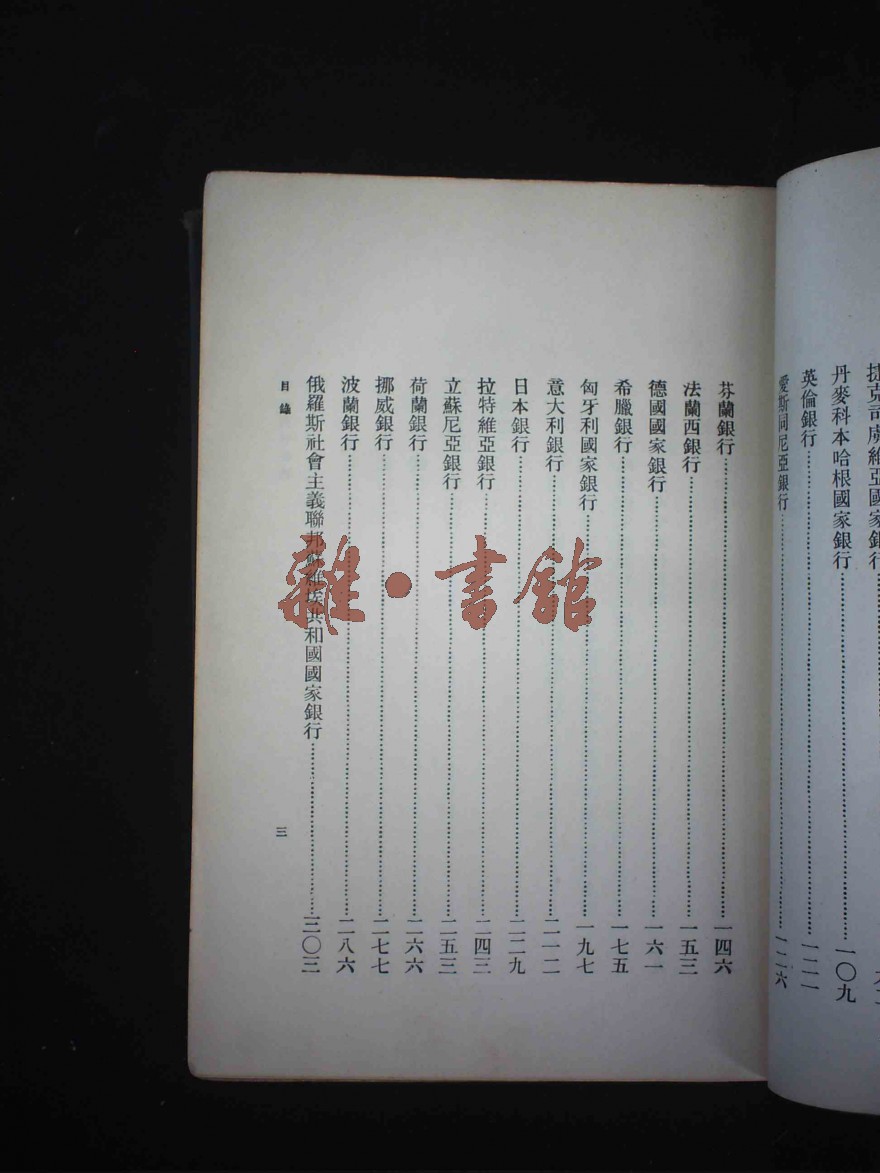 捷克司虞維亞國家銀行
丹麥科本哈根國家銀行⋯⋯一〇九
英倫銀行⋯⋯一二一
愛斯同尼亞銀行⋯⋯一二六
芬蘭銀行⋯⋯一四六
法蘭西銀行⋯⋯一五三
德國國家銀行⋯⋯一六一
希臘銀行⋯⋯一七五
匈牙利國家銀行⋯⋯一九七
意大利銀行⋯⋯二一二
日本銀行⋯⋯二二九
拉特維亞銀行⋯⋯二四三
立蘇尼亞銀行⋯⋯二五三
荷蘭銀行⋯⋯二六六
挪威銀行⋯⋯二七七
波蘭銀行⋯⋯二八六
俄羅斯社會主義聯邦蘇維埃共和國國家銀行⋯⋯三〇三
目錄
三
雜·書館